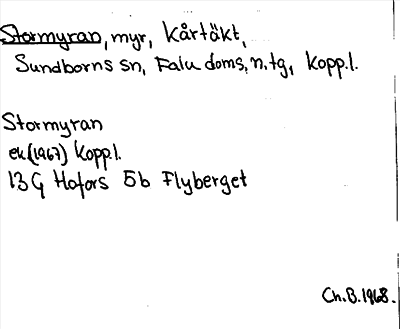 Stormyran, myr, Kårtäkt,
Sundborns sn, Falu doms. n. tg, Kopp.l.
Stormyran
ek (1967) Kopp.l.
13G Hofors 5b Flyberget
Ch.B.1968.